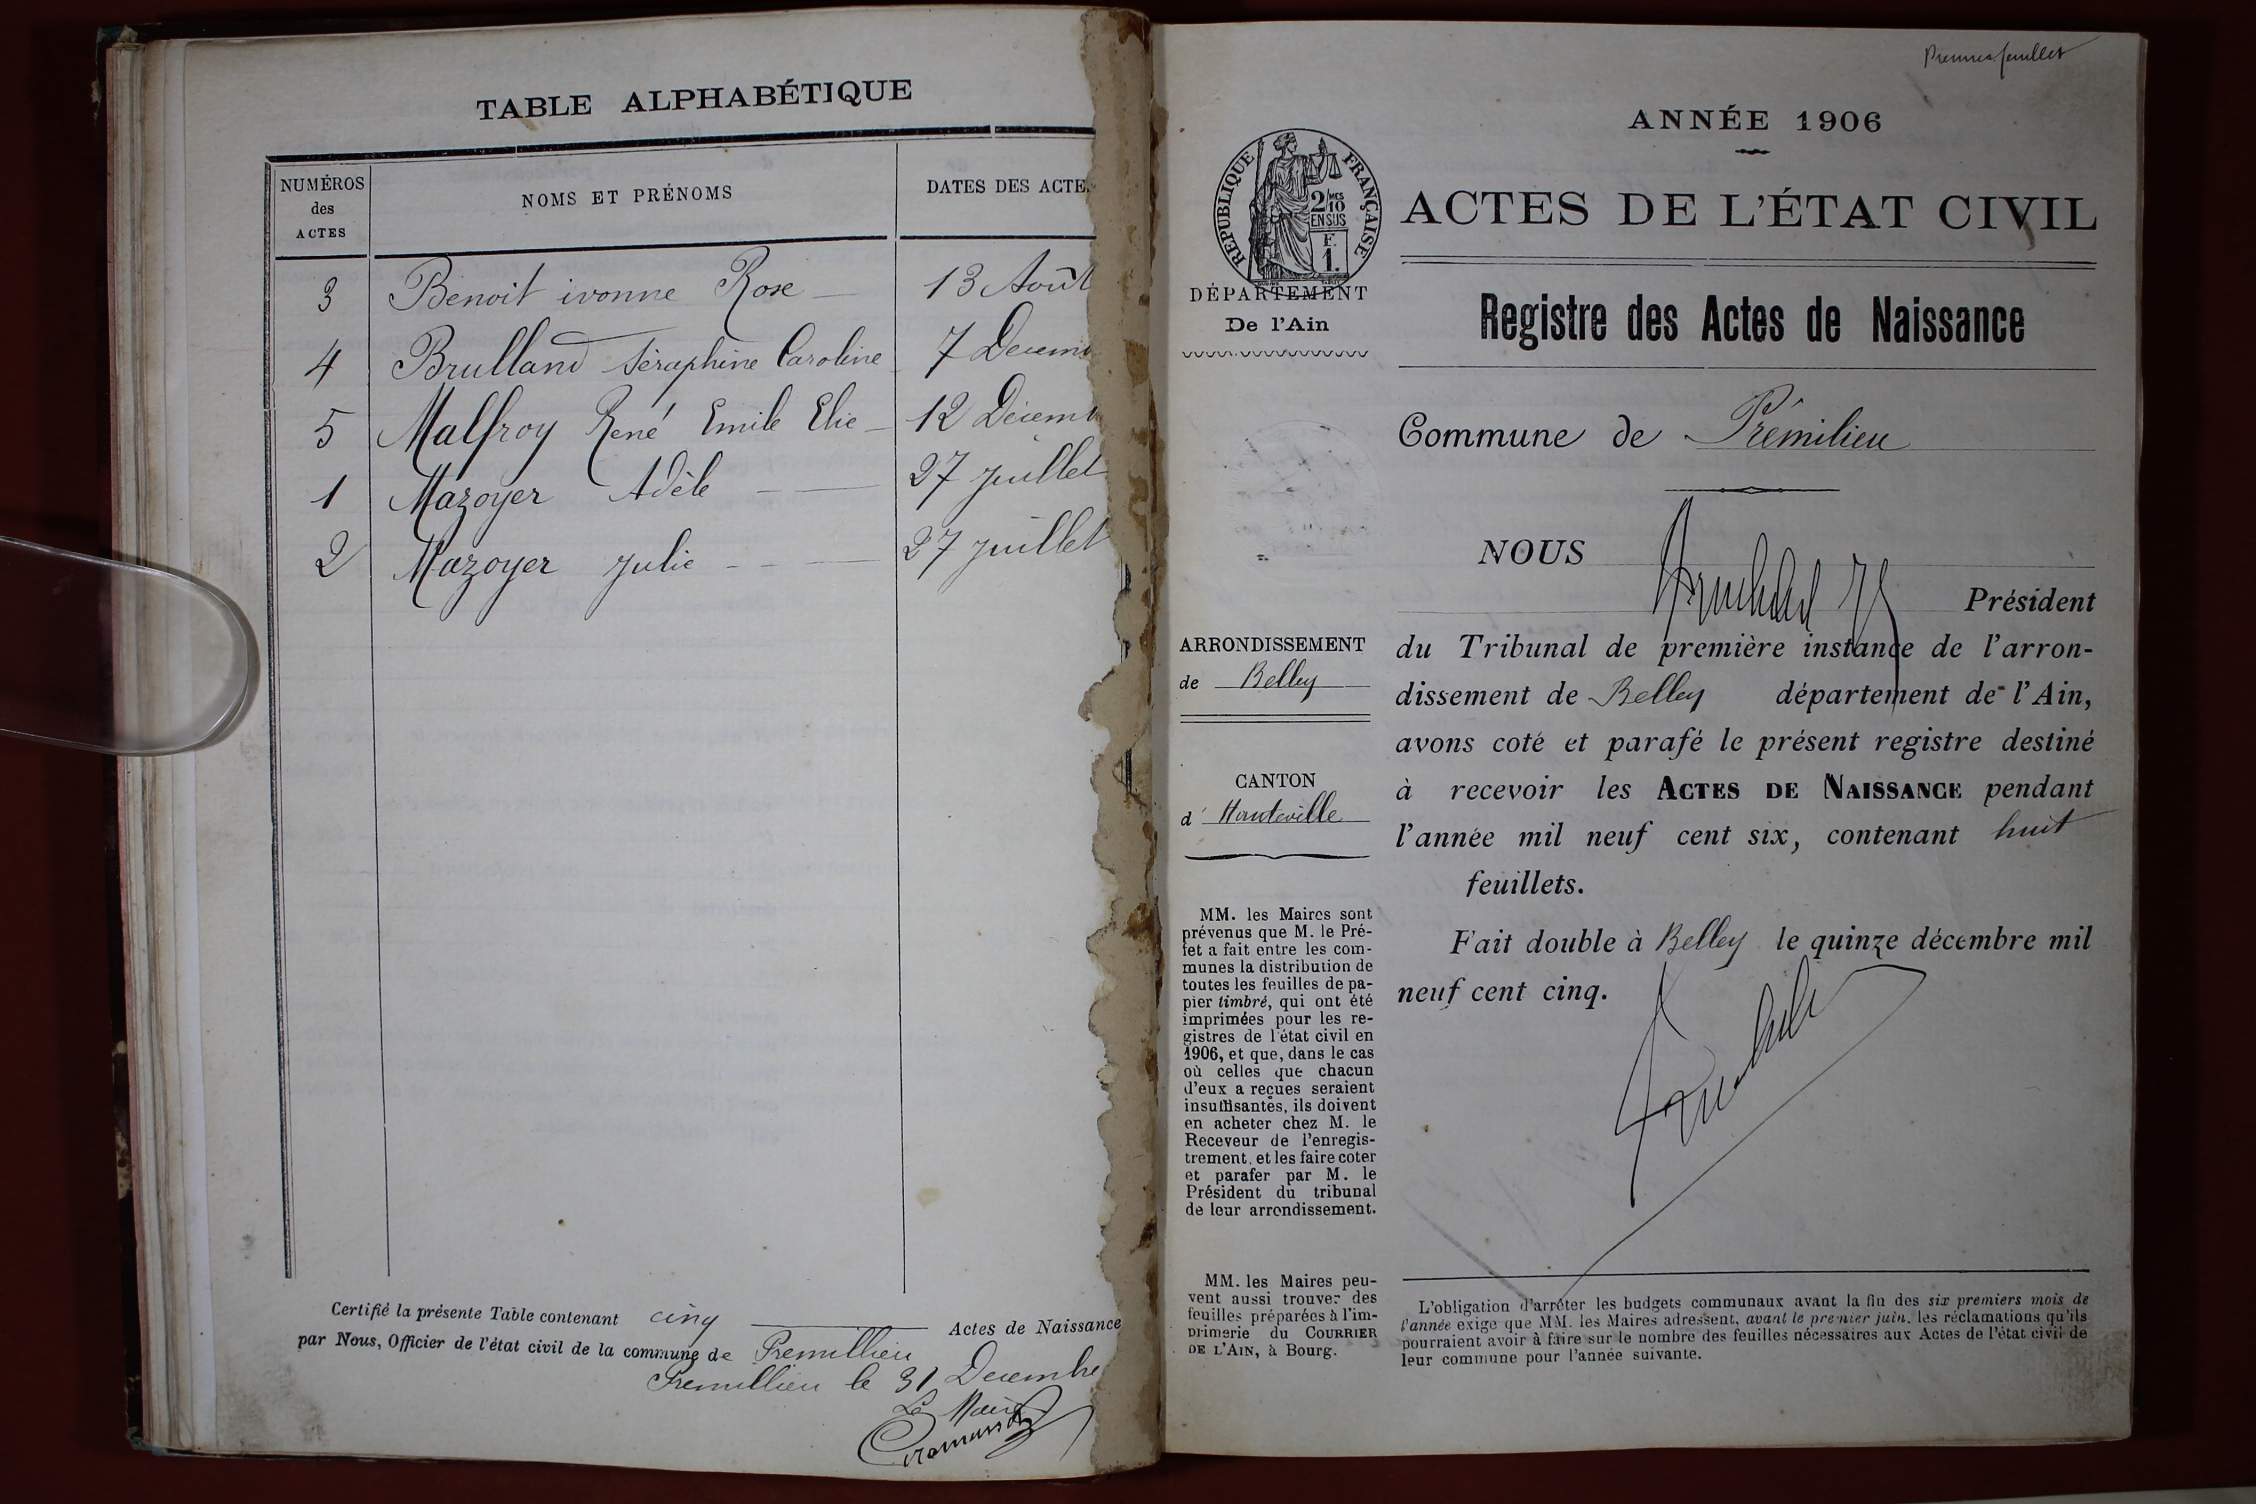 TABLE ALPHABÉTIQUE
NUMÉROS des ACTES
NOMS ET PRÉNOMS
DATES DES ACTE
3 Benoit ivonne Rose 13 Août
4 Brulland Séraphine Caroline 7 Décem
5 Malfroy René Emile Elie 12 Décem
1 Mazoyer Adèle 27 juillet
2 Mazoyer Julie 27 juillet
Certifié la présente Table contenant cinq Actes de Naissance
par Nous, Officier de l'état civil de la commune de Premillieu
Premillieu le 31 Decembre
Le Maire
Premier feuillet
ANNÉE 1906
ACTES DE L'ÉTAT CIVIL
REPUBLIQUE FRANÇAISE
2/10 MES
EN SUS
F.
1.
DÉPARTEMENT
De l'Ain
Registre des Actes de Naissance
Commune de Prémilieu
NOUS
Président
du Tribunal de première instance de l'arron-
dissement de Belley département de l'Ain,
avons coté et parafé le présent registre destiné
à recevoir les ACTES DE NAISSANCE pendant
l'année mil neuf cent six, contenant huit
feuillets.
Fait double à Belley le quinze décembre mil
neuf cent cinq.
ARRONDISSEMENT
de Belley
CANTON
d' Hauteville
MM. les Maires sont
prévenus que M. le Pré-
fet a fait entre les com-
munes la distribution de
toutes les feuilles de pa-
pier timbré, qui ont été
imprimées pour les re-
gistres de l'état civil en
1906, et que, dans le cas
où celles que chacun
d'eux a reçues seraient
insuffisantes, ils doivent
en acheter chez M. le
Receveur de l'enregis-
trement, et les faire coter
et parafer par M. le
Président du tribunal
de leur arrondissement.
MM. les Maires peu-
vent aussi trouver des
feuilles préparées à l'im-
primerie du COURRIER
DE L'AIN, à Bourg.
L'obligation d'arrêter les budgets communaux avant la fin des six premiers mois de
l'année exige que MM. les Maires adressent, avant le premier juin, les réclamations qu'ils
pourraient avoir à faire sur le nombre des feuilles nécessaires aux Actes de l'état civil de
leur commune pour l'année suivante.